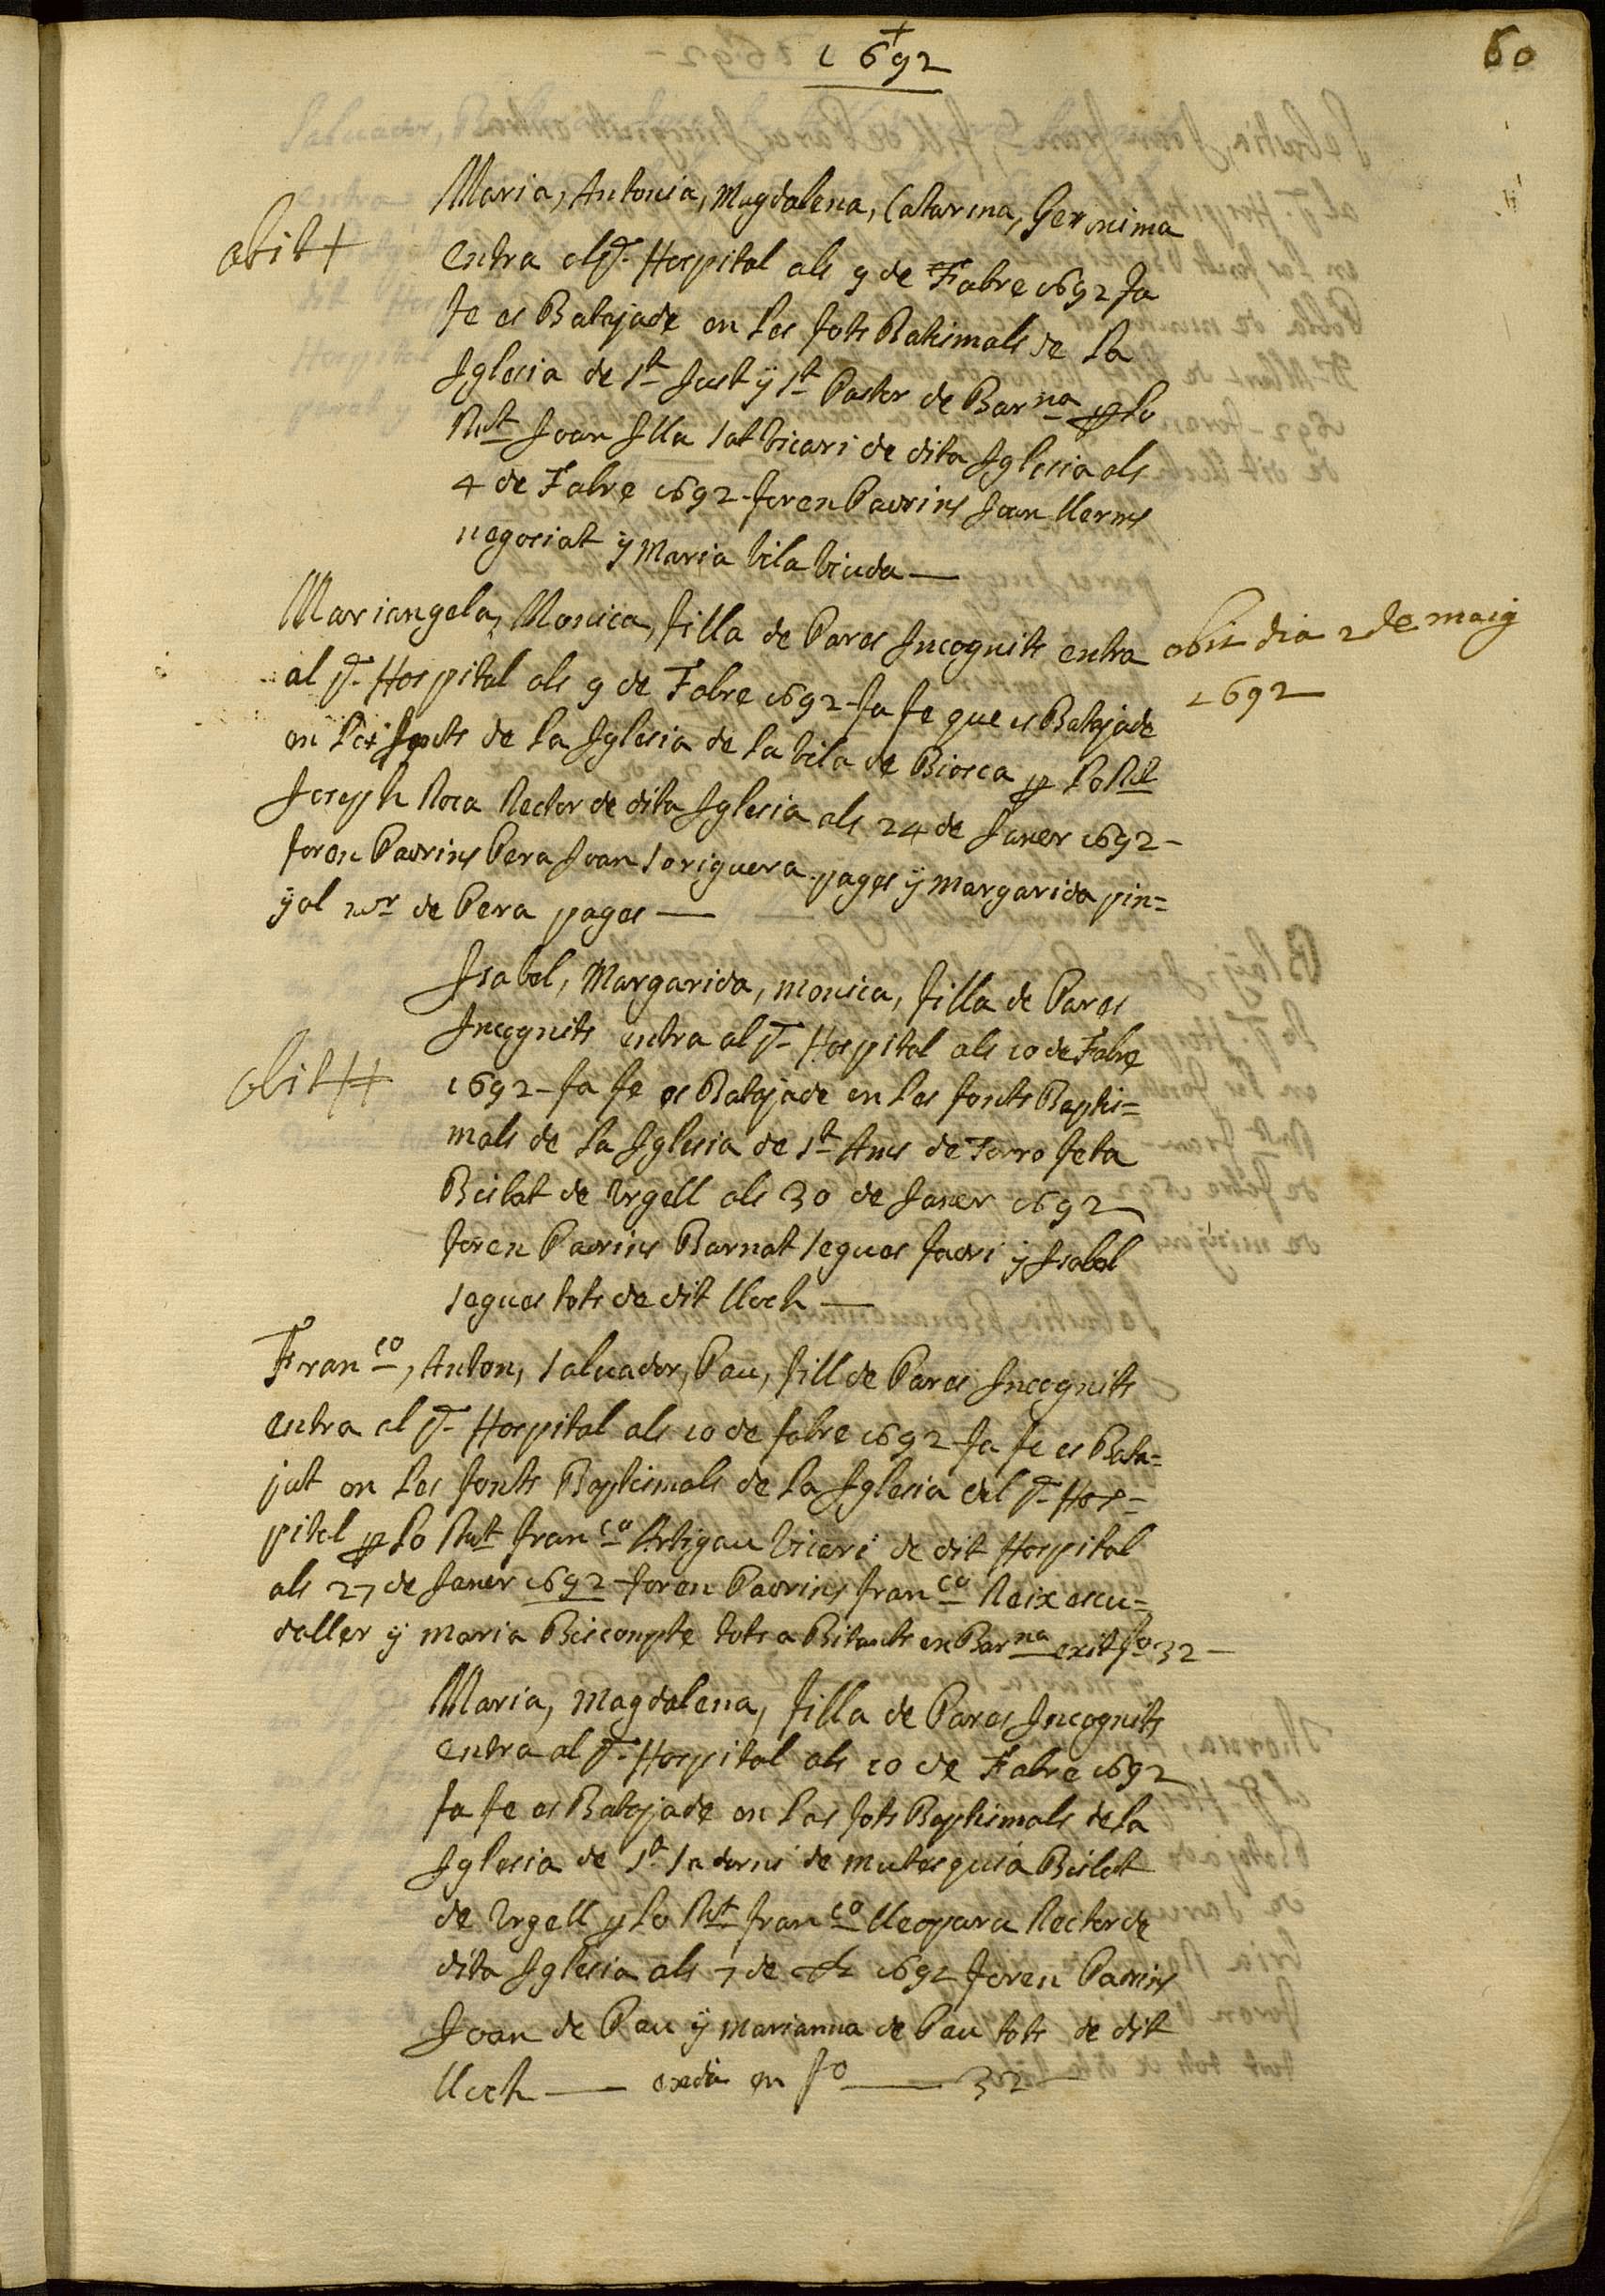 1692
60
Maria, Antonia, Magdalena, Catarina, Geronima
obit +
entra al pt. Hospital als 9 de Fabre 1692 fa
fe es Batejade en Les fots Batismals de La
Iglesia de St Just ÿ St Pastor de Barna per Lo
Rnt Joan Illa sat Vicari de dita Iglesia als
4 de Fabre 1692 - foren Padrins Joan
negosiat ÿ Maria Vila Viuda —
Mariangela, Monica, filla de Pares Incognits entra
obit dia 2 de maig
1692
al pt. Hospital als 9 de Fabre 1692 - fa fe que es Batejade
en Les fonts de La Iglesia de La Vila de Biosca per Lo Rnt
Joseph Roca Rector de dita Iglesia als 24 de Janer 1692 -
foren Padrins Pera Joan soriguera pages ÿ Margarida pin=
ÿol mr de Pera pages —
Isabel, Margarida, monica, filla de Pares
Incognits entra al pt. Hospital als 10 de Fabre
obit ++
1692 - fa fe es Batejade en Les fonts Baptis=
mals de La Iglesia de St de Torrofeta
Bisbat de Vrgell als 30 de Janer 1692
foren Padrins Barnat segues fadri ÿ Isabel
segues tots de dit lloch —
Franco, Anton, saluador, Pau, fill de Pares Incognits
entra al pt. Hospital als 10 de fabre 1692 - fa fe es Bate=
jat en Les fonts Baptismals de La Iglesia del pt. Hos=
pital per Lo Rnt franco Artigau Vicari de dit Hospital
als 27 de Janer 1692 - foren Padrins franco Reix escu=
daller ÿ maria Biscompte tots a Bitants en Barna exit fo 32 -
Maria, Magdalena, filla de Pares Incognits
entra al pt. Hospital als 10 de Fabre 1692
fa fe es Batejade en Las fots Baptismals de La
Iglesia de St sadorni de Bisbat
de Vrgell p Lo Rnt franco lleopara Rector de
dita Iglesia als 7 de dt 1692 foren Padrins
Joan de Pau ÿ Marianna de Pau tots de dit
lloch — en fo — 32 —